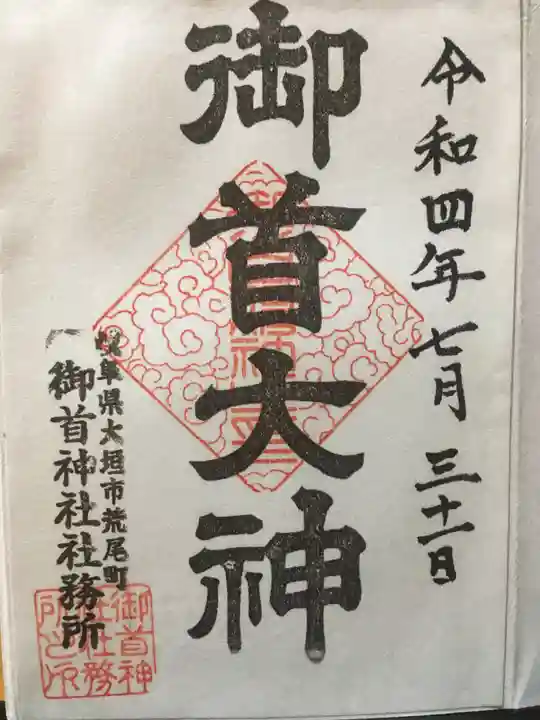 令和四年七月三十一日
御首大神
岐阜県大垣市荒尾町
御首神社社務所
御首神
社社務
所之印